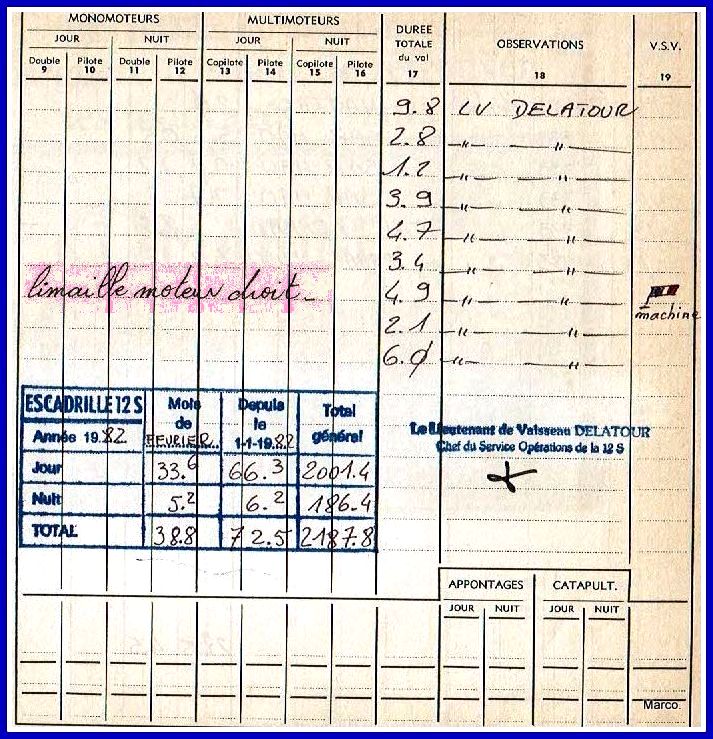 MONOMOTEURS MULTIMOTEURS DUREE TOTALE du vol OBSERVATIONS V.S.V.
JOUR NUIT JOUR NUIT
Double Pilote Double Pilote Copilote Pilote Copilote Pilote
9 10 11 12 13 14 15 16 17 18 19
9.8 LV DELATOUR
2.8 —"— "
1.2 —"— "
3.9 —"— "
4.7 —"— "
3.4 —"— "
limaille moteur droit_ 4.9 —"— "
machine
2.1 —"— "
6.0 —"— "
ESCADRILLE 12 S Mois de FEVRIER.. Depuis le 1-1-1982 Total général
Année 1982
Le Lieutenant de Vaisseau DELATOUR
Chef du Service Opérations de la 12 S
Jour 33.6 66.3 2001.4
Nuit 5.2 6.2 186.4
TOTAL 38.8 72.5 2187.8
APPONTAGES CATAPULT.
JOUR NUIT JOUR NUIT
Marco.